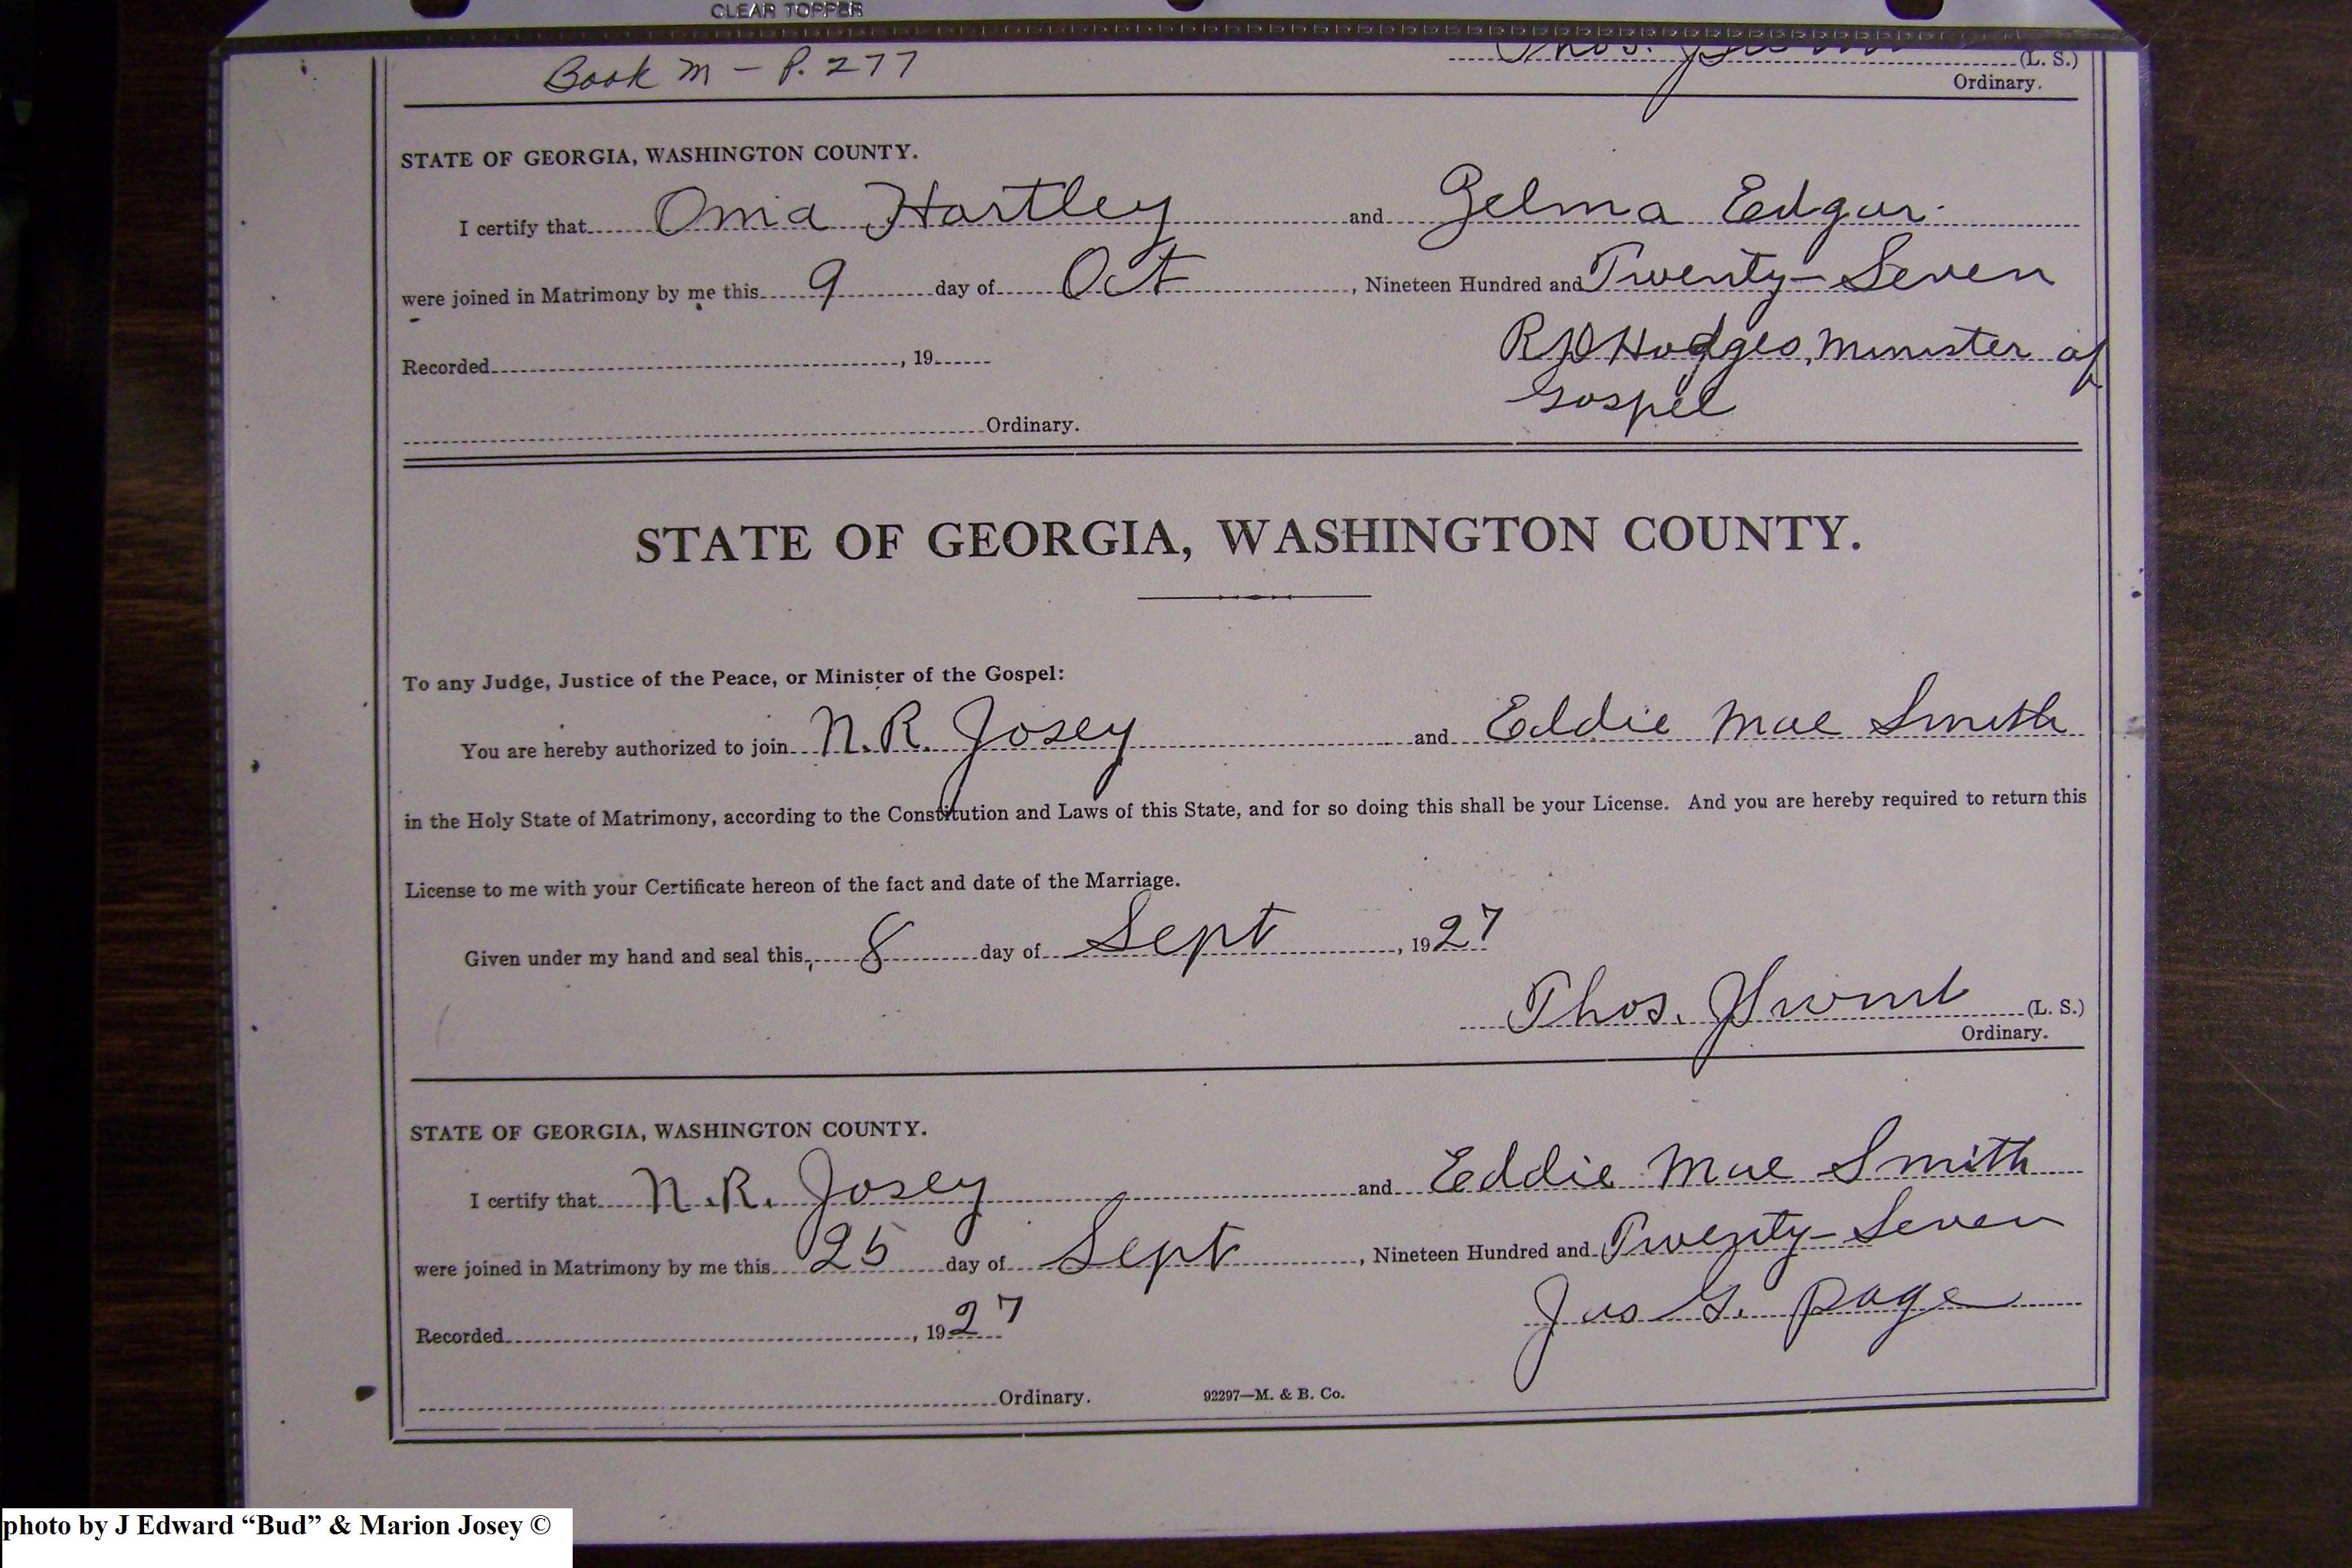 CLEAR TOPPER
Book M – P. 277
Thos. (L. S.)
Ordinary.
STATE OF GEORGIA, WASHINGTON COUNTY.
I certify that Oma Hartley and Zelma Edgar.
were joined in Matrimony by me this 9 day of Oct, Nineteen Hundred and Twenty-Seven
Recorded, 19 Hodges, Minister of
Gospel
Ordinary.
STATE OF GEORGIA, WASHINGTON COUNTY.
To any Judge, Justice of the Peace, or Minister of the Gospel:
You are hereby authorized to join N.R. Josey and Eddie Mae Smith
in the Holy State of Matrimony, according to the Constitution and Laws of this State, and for so doing this shall be your License. And you are hereby required to return this
License to me with your Certificate hereon of the fact and date of the Marriage.
Given under my hand and seal this, 8 day of Sept, 1927
Thos. (L. S.)
Ordinary.
STATE OF GEORGIA, WASHINGTON COUNTY.
I certify that N.R. Josey and Eddie Mae Smith
were joined in Matrimony by me this 25 day of Sept, Nineteen Hundred and Twenty-Seven
Jas G. Page
Recorded, 1927
Ordinary. 92297—M. & B. Co.
photo by J Edward “Bud” & Marion Josey ©